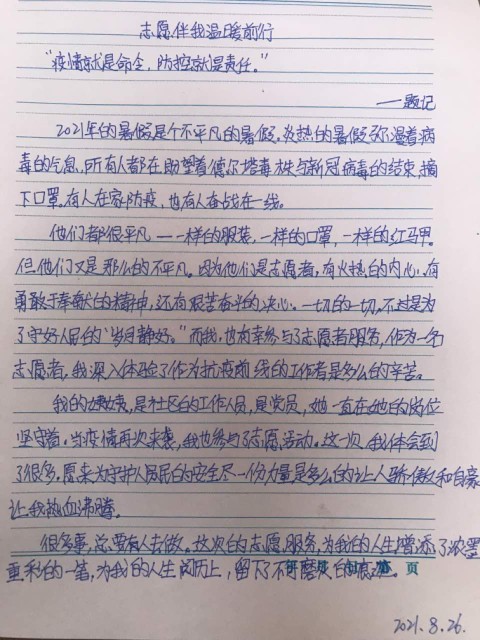 志愿伴我温暖前行
“疫情就是命令，防控就是责任。”
——题记
2021年的暑假是个不平凡的暑假。炎热的暑假弥漫着病
毒的气息，所有人都在盼望着德尔塔毒株与新冠病毒的结束，摘
下口罩。有人在家防疫，也有人奋战在一线。
他们都很平凡——一样的服装，一样的口罩，一样的红马甲。
但他们又是那么的不平凡。因为他们是志愿者，有火热的内心，有
勇敢于奉献的精神，还有艰苦奋斗的决心。一切的一切，不过是为
了守好人民的“岁月静好。”而我，也有幸参与了志愿者服务，作为一名
志愿者，我深入体验了作为抗疫前线的工作者是多么的辛苦。
我的姨姨，是社区的工作人员，是党员，她一直在她的岗位
坚守着。当疫情再次来袭，我也参与了志愿活动。这一次，我体会到
了很多，原来为守护人民的安全尽一份力量是多么的让人骄傲和自豪
让我热血沸腾。
很多事，总要有人去做。这次的志愿服务，为我的人生增添了浓墨
重彩的一笔，为我的人生阅历上，留下了不可磨灭的痕迹。
页
2021.8.26.